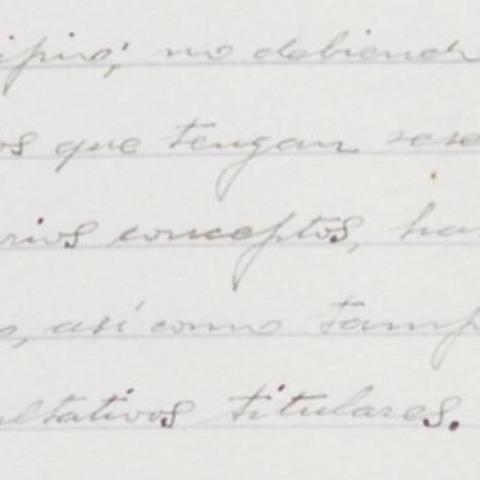 no debiend
os que tengan rese
rios conceptos, has
s, así como tamp
ultativos titulares.